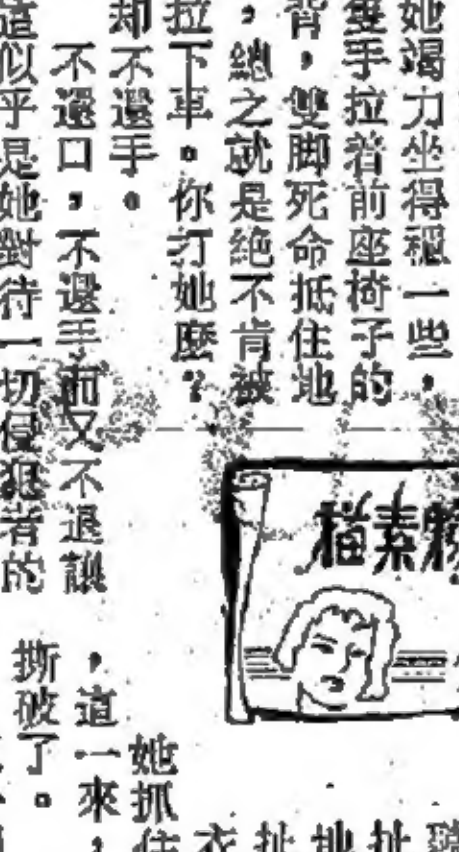 她竭力坐得穩一些，
雙手拉着前座椅子的
背，雙脚死命抵住地
，總之就是絶不肯被
拉下車。你打她麽？
却不還手。
不還口，不還手而又不退讓
這似乎是她對待一切侵犯者的
描素
她抓住
，這一來，
撕破了。